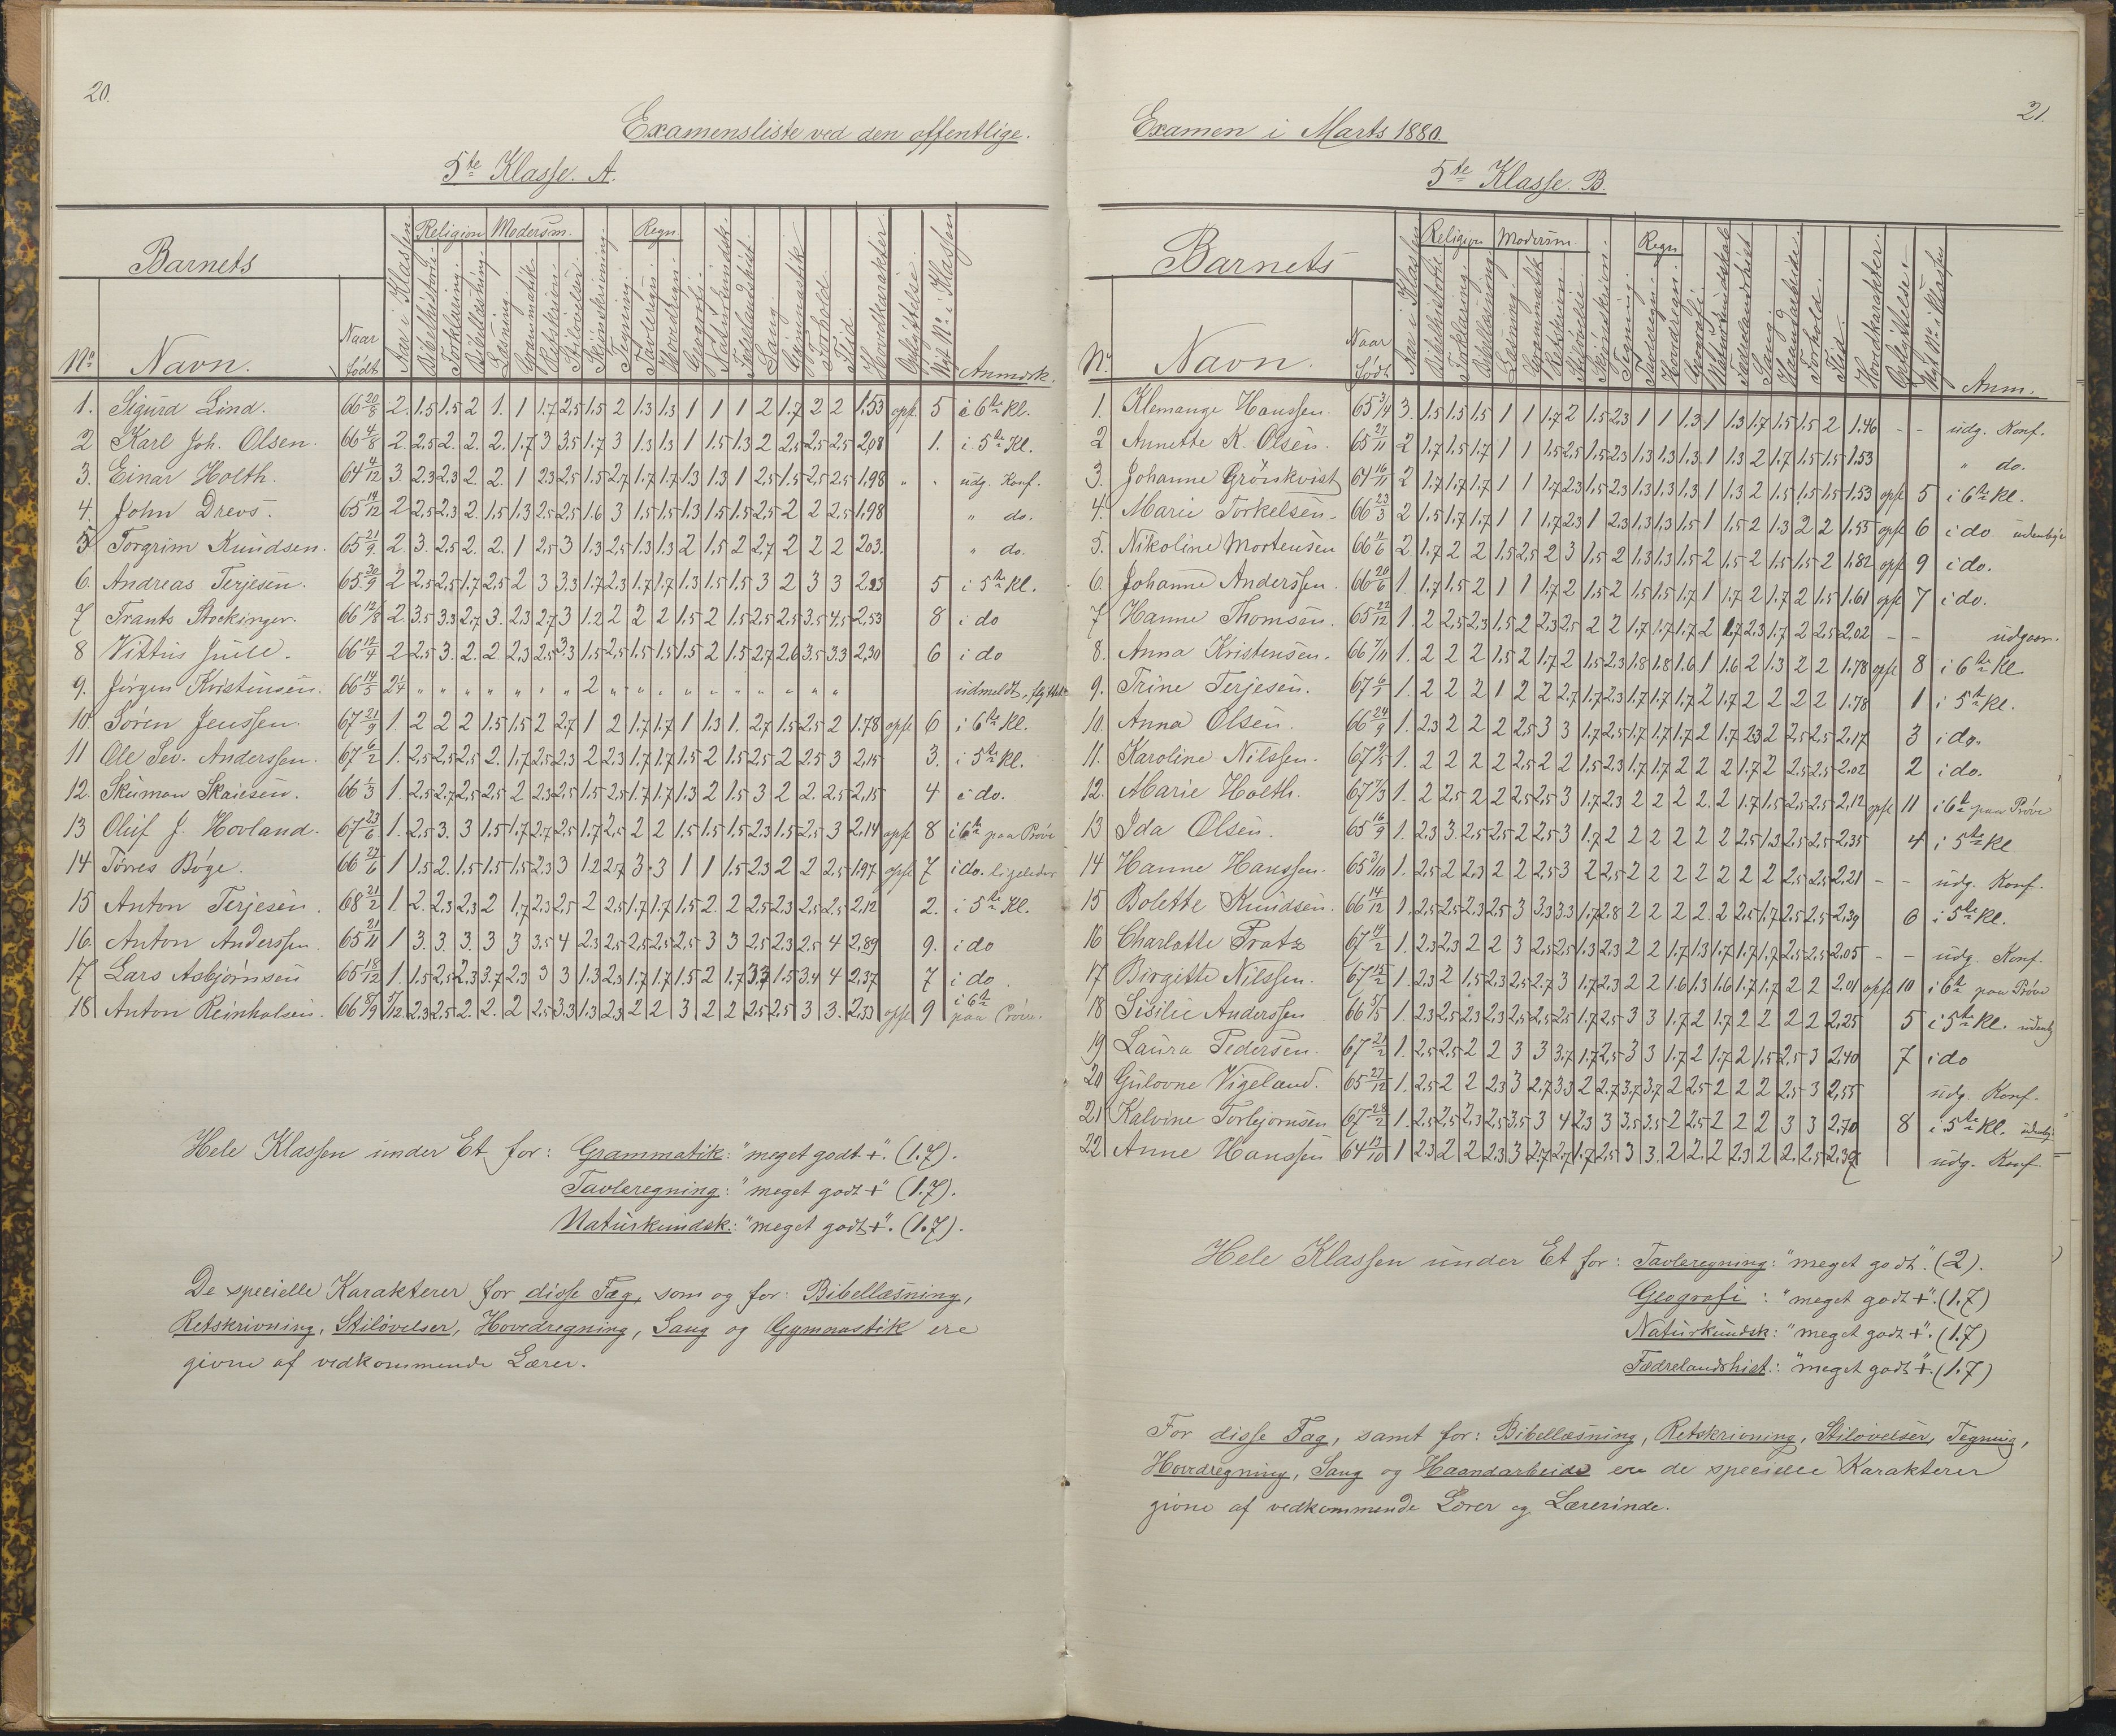 20.
Examensliste ved den offentlige.
5te Klasse. A.
Barnets
Religion Modersm. Regn.
No Navn. Naar født Aar i Klassen Bibelhistorie. Forklaring. Bibellæsning. Læsning. Grammatik. Retskrivn. Stiløvelser. Skjønskrivning. Tegning. Tavleregn. Hovedregn. Geografi. Naturkundsk. Fædrelandshist. Sang. Gymnastik. Forhold. Flid. Hovedkarakter. Opflyttelse. Nyt No i Klassen Anmærk.
1. Sigurd Lind. 66 20/8 2. 1.5 1.5 2 1. 1 1.7 2,5 1.5 2 1.3 1.3 1 1 1 2 1.7 2 2 1,53 opf. 5 i 6te Kl.
2 Karl Joh. Olsen. 66 4/8 2. 2,5 2. 2. 2. 1.7 3 3.5 1.7 3 1.3 1.3 1 1.5 1.3 2 2,5 2,5 2,5 2,08 1. i 5te Kl.
3. Einar Holth. 64 4/12 3. 2.3 2.3 2. 2. 1 2.3 2.5 1.5 2.7 1.7 1.7 1.3 1.3 1 2,5 1.5 2,5 2,5 1,98 " " udg. Konf.
4. John Drevs. 65 14/12 2 2,5 2.3 2. 1.5 1.3 2.5 2.5 1.6 3 1.5 1.5 1.3 1.5 1.5 2.5 2 2 2.5 1,98 " do.
5 Torgrim Knudsen. 65 21/9 2. 3. 2.5 2. 2. 1 2.5 3 1.3 2.5 1.3 1.3 2 1.5 2 2.7 2 2 2 2,03. " do.
6. Andreas Terjesen. 65 30/9 2 2.5 2.5 1.7 2.5 2 3 3.3 1.7 2.3 1.7 1.7 1.3 1.5 1.5 3 2 3 3 2,25 5 i 5te Kl.
7 Frants Stockinger. 66 12/8 2. 3.5 3.3 2.7 3. 2.3 2.7 3 1.2 2 2 2 1.5 2 1.5 2.5 2.5 3.5 4.5 2,53 8 i do
8 Vittus Juell. 66 12/4 2 2.5 3. 2. 2. 2.3 2.5 3.3 1.5 2.5 1.5 1.5 1.5 2 1.5 2.7 2.6 3.5 3.3 2,30 6 i do
9. Jörgen Kristensen. 66 14/5 2 1/4 " " " " " " " 2 " " " " " " " " " " udmeldt,
10. Sören Jenssen. 67 21/9 1. 2 2 2 1.5 1.5 2 2.7 1 2 1.7 1.7 1 1.3 1. 2.7 1.5 2.5 2 1,78 opfl 6 i 6te Kl.
11 Ole Sev. Anderssen. 67 6/2 1. 2.5 2.5 2.5 2. 1.7 2.5 2.3 2 2.3 1.7 1.7 1.5 2 1.5 2.5 2 2.5 3 2,15 3. i 5te Kl.
12. Skuman Skaiesen. 66 1/3 1. 2.5 2.7 2.5 2.5 2 2.3 2.5 1.5 2.5 1.7 1.7 1.3 2 1.5 3 2 2. 2.5 2,15 4 i do.
13 Oluf J. Hovland. 67 23/6 1. 2.5 3. 3 1.5 1.7 2.7 2.5 1.7 2.5 2 2 1.5 1.5 1.5 2.3 1.5 2.5 3 2,14 opfl 8 i 6te paa Prøve
14 Tørres Bøge. 66 27/6 1 1.5 2. 1.5 1.5 1.5 2.3 3 1.2 2.7 3 3 1 1 1.5 2.3 2 2 2.5 1,97 opfl 7 i do. ligeledes
15 Anton Terjesen. 68 21/2 1. 2. 2.3 2.3 2 1.7 2.3 2.5 2 2.5 1.7 1.7 1.5 2. 2 2.5 2.3 2.5 2.5 2,12 2. i 5te Kl.
16. Anton Anderssen. 65 21/11 1 3. 3. 3. 3 3 3.5 4 2.3 2.5 2.5 2.5 2.5 3 3 2.5 2.3 2.5 4 2,89 9. i do
17 Lars Asbjørnsen 65 18/12 1. 1.5 2.5 2.3 3.7 2.3 3 3 1.3 2.3 1.7 1.7 1.5 2 1.7 3.3 1.5 3.4 4 2,37 7 i do.
18 Anton Reinholsen. 66 8/9 5/12 2.3 2.5 2. 2. 2 2.5 3.3 1.3 2.3 2 2 3 2 2 2.5 2.5 3 3. 2,33 opfl 9 i 6te paa Prøve.
Hele Klassen under Et for: Grammatik: "meget godt +". (1.7).
Tavleregning: "meget godt +" (1.7).
Naturkundsk.: "meget godt +". (1.7).
De specielle Karakterer for disse Fag, som og for: Bibellæsning,
Retskrivning, Stiløvelser, Hovedregning, Sang og Gymnastik ere
givne af vedkommende Lærer.
21.
Examen i Marts 1880.
5te Klasse. B.
Barnets
Religion Modersm. Regn
Nr. Navn. Naar Født Aar i Klassen Bibelhistorie Forklaring. Bibellæsning Læsning. Grammatik Retskrivn. Stiløvelse. Skjønskrivn. Tegning. Tavleregn. Hovedregn. Geografi. Naturkundskab Fædrelandshist Sang. Haandarbeide. Forhold. Flid. Hovedkarakter. Opflyttelse. Nyt No. i Klassen Anm.
1. Klemange Hanssen. 65 3/4 3. 1.5 1.5 1.5 1 1 1.7 2 1.5 2.3 1 1 1.3 1 1.3 1.7 1.5 1.5 2 1.46 - - udg. Konf.
2 Annette K. Olsen. 65 27/11 2 1.7 1.5 1.7 1 1 1.5 2.5 1.5 2.3 1.3 1.3 1.3 1 1.3 2 1.7 1.5 1.5 1.53 " do.
3. Johanne Grönkvist 64 16/11 2 1.7 1.7 1.7 1 1 1.7 2.3 1.5 2.3 1.3 1.3 1.3 1 1.3 2 1.5 1.5 1.5 1.53 opfl 5 i 6te Kl.
4. Marie Torkelsen. 66 23/3 2 1.5 1.7 1.7 1 1 1.7 2.3 1 2.3 1.3 1.3 1.5 1 1.5 2 1.3 2 2 1.55 opfl 6 i do.
5. Nikoline Mortensen 66 11/6 2. 1.7 2 2 1.5 2.5 2 3 1.5 2 1.3 1.3 1.5 2 1.5 2 1.5 1.5 2 1.82 opfl 9 i do.
6. Johanne Anderssen. 66 20/6 1. 1.7 1.5 2 1 1 1.7 2 1.5 2 1.5 1.5 1.7 1 1.7 2 1.7 2 1.5 1.61 opfl 7 i do.
7 Hanne Thomsen. 65 22/12 1. 2 2.5 2.3 1.5 2 2.3 2.5 2 2 1.7 1.7 1.7 2 1.7 2.3 1.7 2 2.5 2.02 - - udgaar.
8. Anna Kristensen. 66 7/11 1. 2 2 2 1.5 2 1.7 2 1.5 2.3 1.8 1.8 1.6 1 1.6 2 1.3 2 2 1.78 opfl 8 i 6te Kl
9. Trine Terjesen. 67 6/1 1. 2 2 2 1 2 2 2.7 1.7 2.3 1.7 1.7 1.7 2 1.7 2 2 2 2 1.78 1 i 5te Kl.
10. Anna Olsen. 66 24/9 1. 2.3 2 2 2 2.5 3 3 1.7 2.5 1.7 1.7 1.7 2 1.7 2.3 2 2.5 2.5 2.17 3 i do.
11. Karoline Nilssen. 67 9/5 1. 2 2 2 2 2.5 2 2 1.5 2.3 1.7 1.7 2 2 2 1.7 2 2.5 2.5 2.02 2 i do.
12. Marie Holth. 67 7/3 1. 2 2.5 2 2 2.5 2.5 3 1.7 2.3 2 2 2 2. 2 1.7 1.5 2.5 2.5 2.12 opfl 11 i 6te paa Prøve
13 Ida Olsen. 65 16/9 1. 2.3 3. 2.5 2.5 2 2.5 3 1.7 2 2 2 2 2 2 2.5 1.3 2.5 2.5 2.35 4 i 5te Kl
14 Hanne Hanssen. 65 3/10 1. 2.5 2 2.3 2 2 2.5 3 2 2.5 2 2 2 2 2 2 2 2.5 2.5 2.21 - - udg. Konf.
15 Bolette Knudsen. 66 14/12 1. 2.5 2.5 2.3 2.5 3 3.3 3.3 1.7 2.8 2 2 2 2. 2 2.5 1.7 2.5 2.5 2.39 6 i 5te Kl.
16 Charlotte Fratz 67 14/2 1. 2.3 2.3 2 2 3 2.5 2.5 1.3 2.3 2 2 1.7 1.3 1.7 1.7 1.7 2.5 2.5 2.05 - - udg. Konf.
17 Birgitte Nilssen. 67 15/2 1 2.3 2 1.5 2.3 2.5 2.7 3 1.7 2.3 2 2 1.6 1.3 1.6 1.7 1.7 2 2 2.01 opfl 10 i 6te paa Prøve
18 Sisilie Anderssen 66 5/5 1. 2.3 2.5 2.3 2.3 2.5 2.5 2.5 1.7 2.5 3 3 1.7 2 1.7 2 2 2 2 2,25 5 i 5te Kl.
19 Laura Pedersen. 67 21/2 1. 2.5 2.5 2 2 3 3 3.7 1.7 2.5 3 3 1.7 2 1.7 2 1.5 2.5 3 2,40 7 i do
20 Gulovne Vigeland. 65 27/12 1. 2.5 2 2 2.3 3 2.7 3.3 2 2.7 3.7 3.7 2 2.5 2 2 2 2.5 3 2,55 udg. Konf.
21 Kalvine Torbjørnsen 67 28/2 1. 2.5 2.5 2.3 2.5 3.5 3 4 2.3 3 3.5 3.5 2 2.5 2 2 2 3 3 2,70 8 i 5te Kl.
22 Anne Hanssen 64 13/10 1 2.3 2 2 2.3 3 2.7 2.7 1.7 2.5 3 3. 2 2. 2 2.3 2 2. 2.5 2.37 udg. Konf.
Hele Klassen under Et for: Tavleregning: "meget godt". (2).
Geografi: "meget godt +". (1.7)
Naturkundsk: "meget godt +". (1.7)
Fædrelandshist.: "meget godt +". (1.7)
For disse Fag, samt for: Bibellæsning, Retskrivning, Stiløvelser, Tegning,
Hovedregning, Sang og Haandarbeide ere de specielle Karakterer
givne af vedkommende Lærer og Lærerinde.